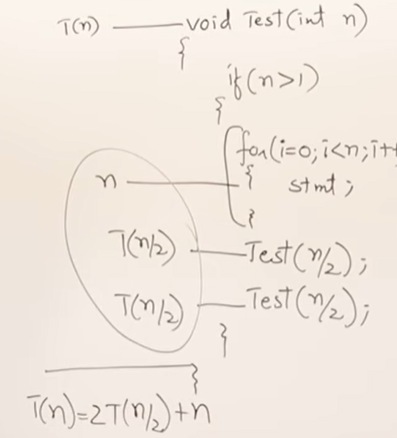 T(n) — void Test(int n)
{
if(n>1)
{
for(i=0;i<n;i++
n — { stmt;
}
T(n/2) — Test(n/2);
T(n/2) — Test(n/2);
}
}
T(n)=2T(n/2)+n